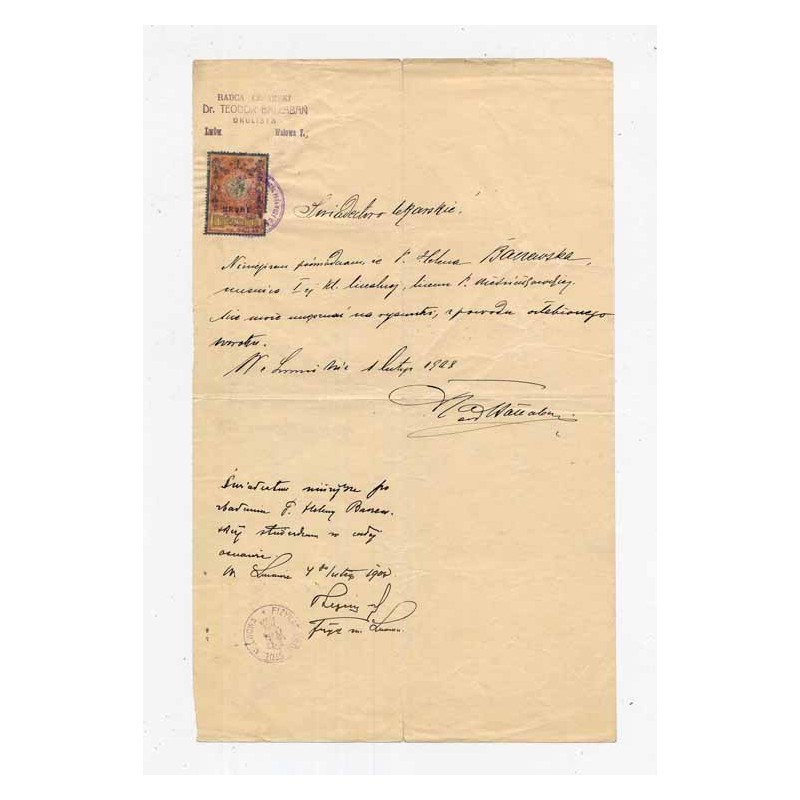 RADCA CESARSKI
Dr. TEODOR BAŁŁABAN
OKULISTA
Lwów, Wałowa 7.
Świadectwo lekarskie.
Niniejszem poświadczam, że P. Helena Bączewska,
uczenica I ej kl. licealnej, liceum P.
Nie może uczęszczać na rysunki, z powodu osłabionego
wzroku.
We Lwowie dnia 1 lutego 1908
Świadectwo niniejsze po
zbadaniu P. Heleny Baczew-
skiej stwierdzam w całej
osnowie.
We Lwowie 4 lutego 1908
Fizyk m. Lwowa.